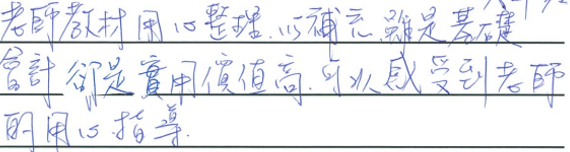 老師教材用心整理.以補充.雖是基礎
會計 卻是實用價值高.可以感受到老師
的用心指導.